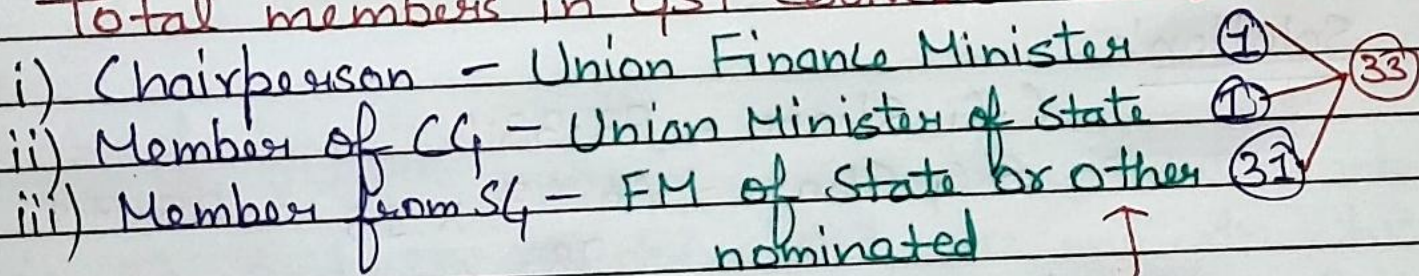 Total members in GST
i) Chairperson - Union Finance Minister 1
ii) Member of CG - Union Minister of State 1 33
iii) Member from SG - FM of State or other 31
nominated